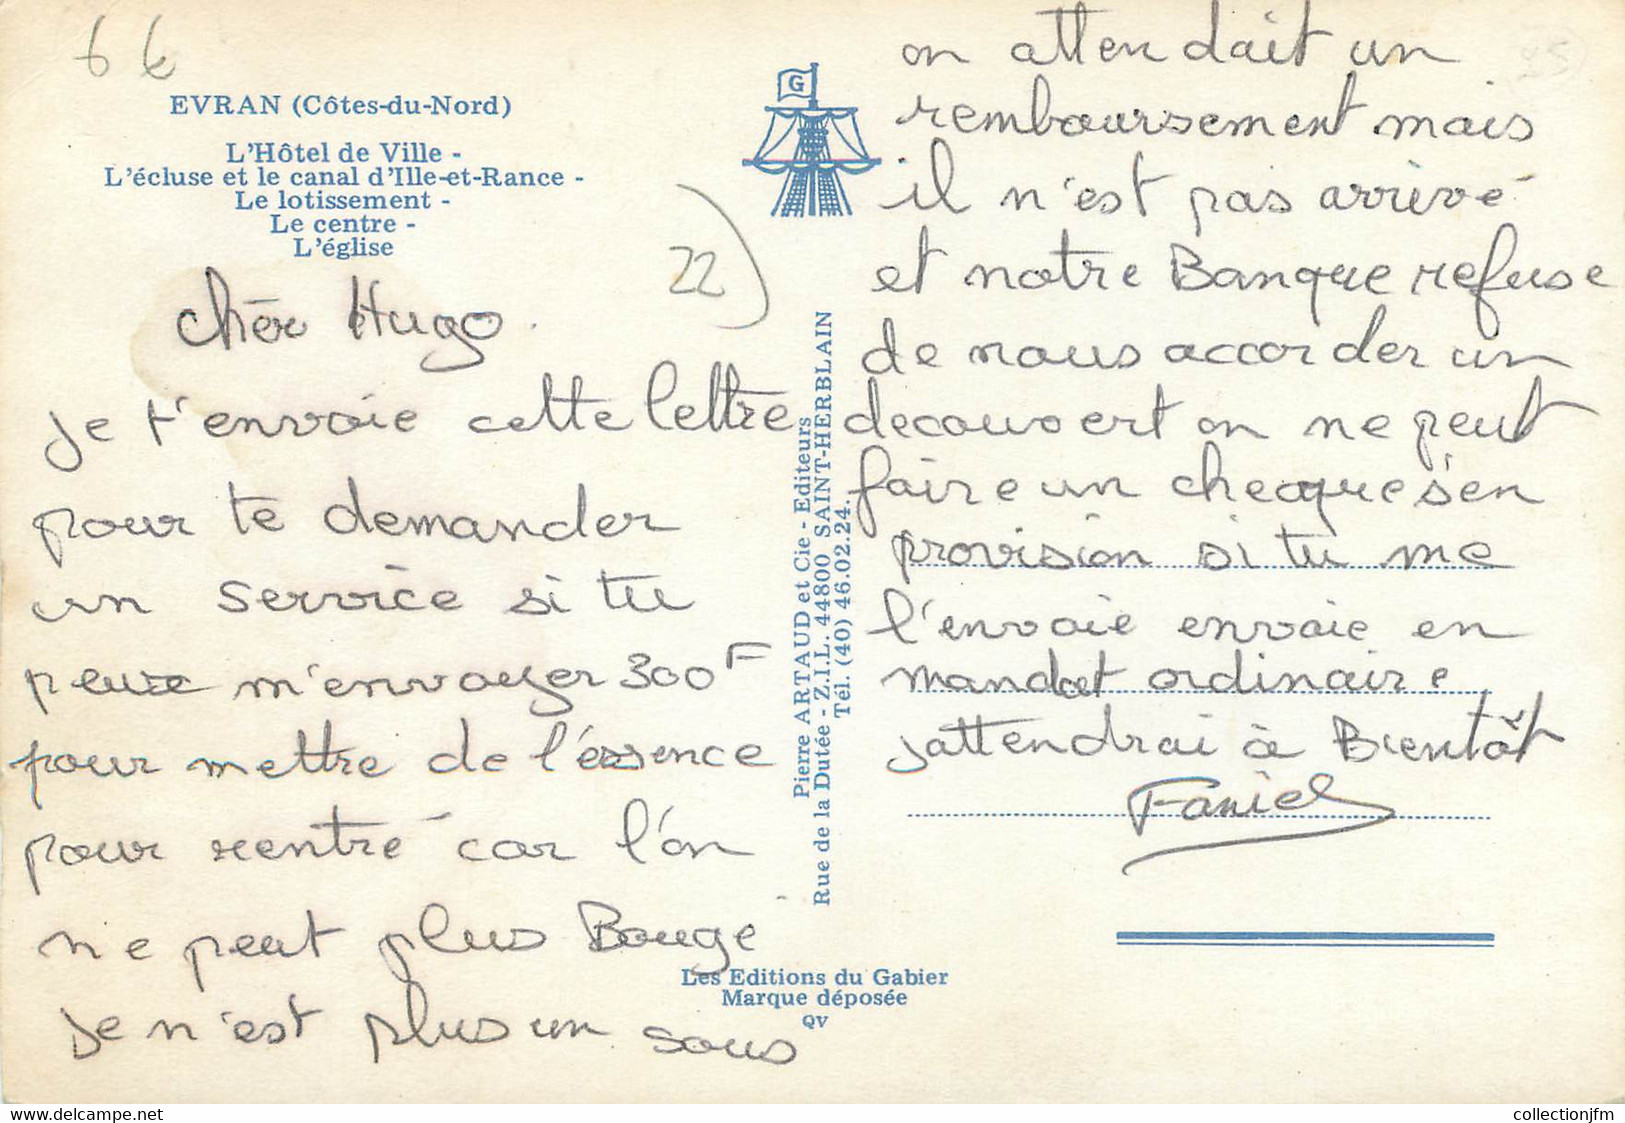 EVRAN (Côtes-du-Nord)
L'Hôtel de Ville -
L'écluse et le canal d'Ille-et-Rance -
Le lotissement -
Le centre -
L'église
22
G
chèr Hugo.
je t'envoie cette lettre
pour te demander
un service si tu
peuxe m'envoyer 300F
pour mettre de l'éssence
pour rentré car l'on
ne peut plus Bouge
je n'est plus un sous
Pierre ARTAUD et Cie - Editeurs
Rue de la Dutée - Z.I.L. 44800 SAINT-HERBLAIN
Tél. (40) 46.02.24.
Les Editions du Gabier
Marque déposée
QV
on attendait un
remboursement mais
il n'est pas arrivé
et notre Banque refuse
de nous accorder un
decouvert on ne peut
faire un cheque s'en
provision si tu me
l'envoie envoie en
mandat ordinaire
jattendrai à Bientôt
25
collectionjfm